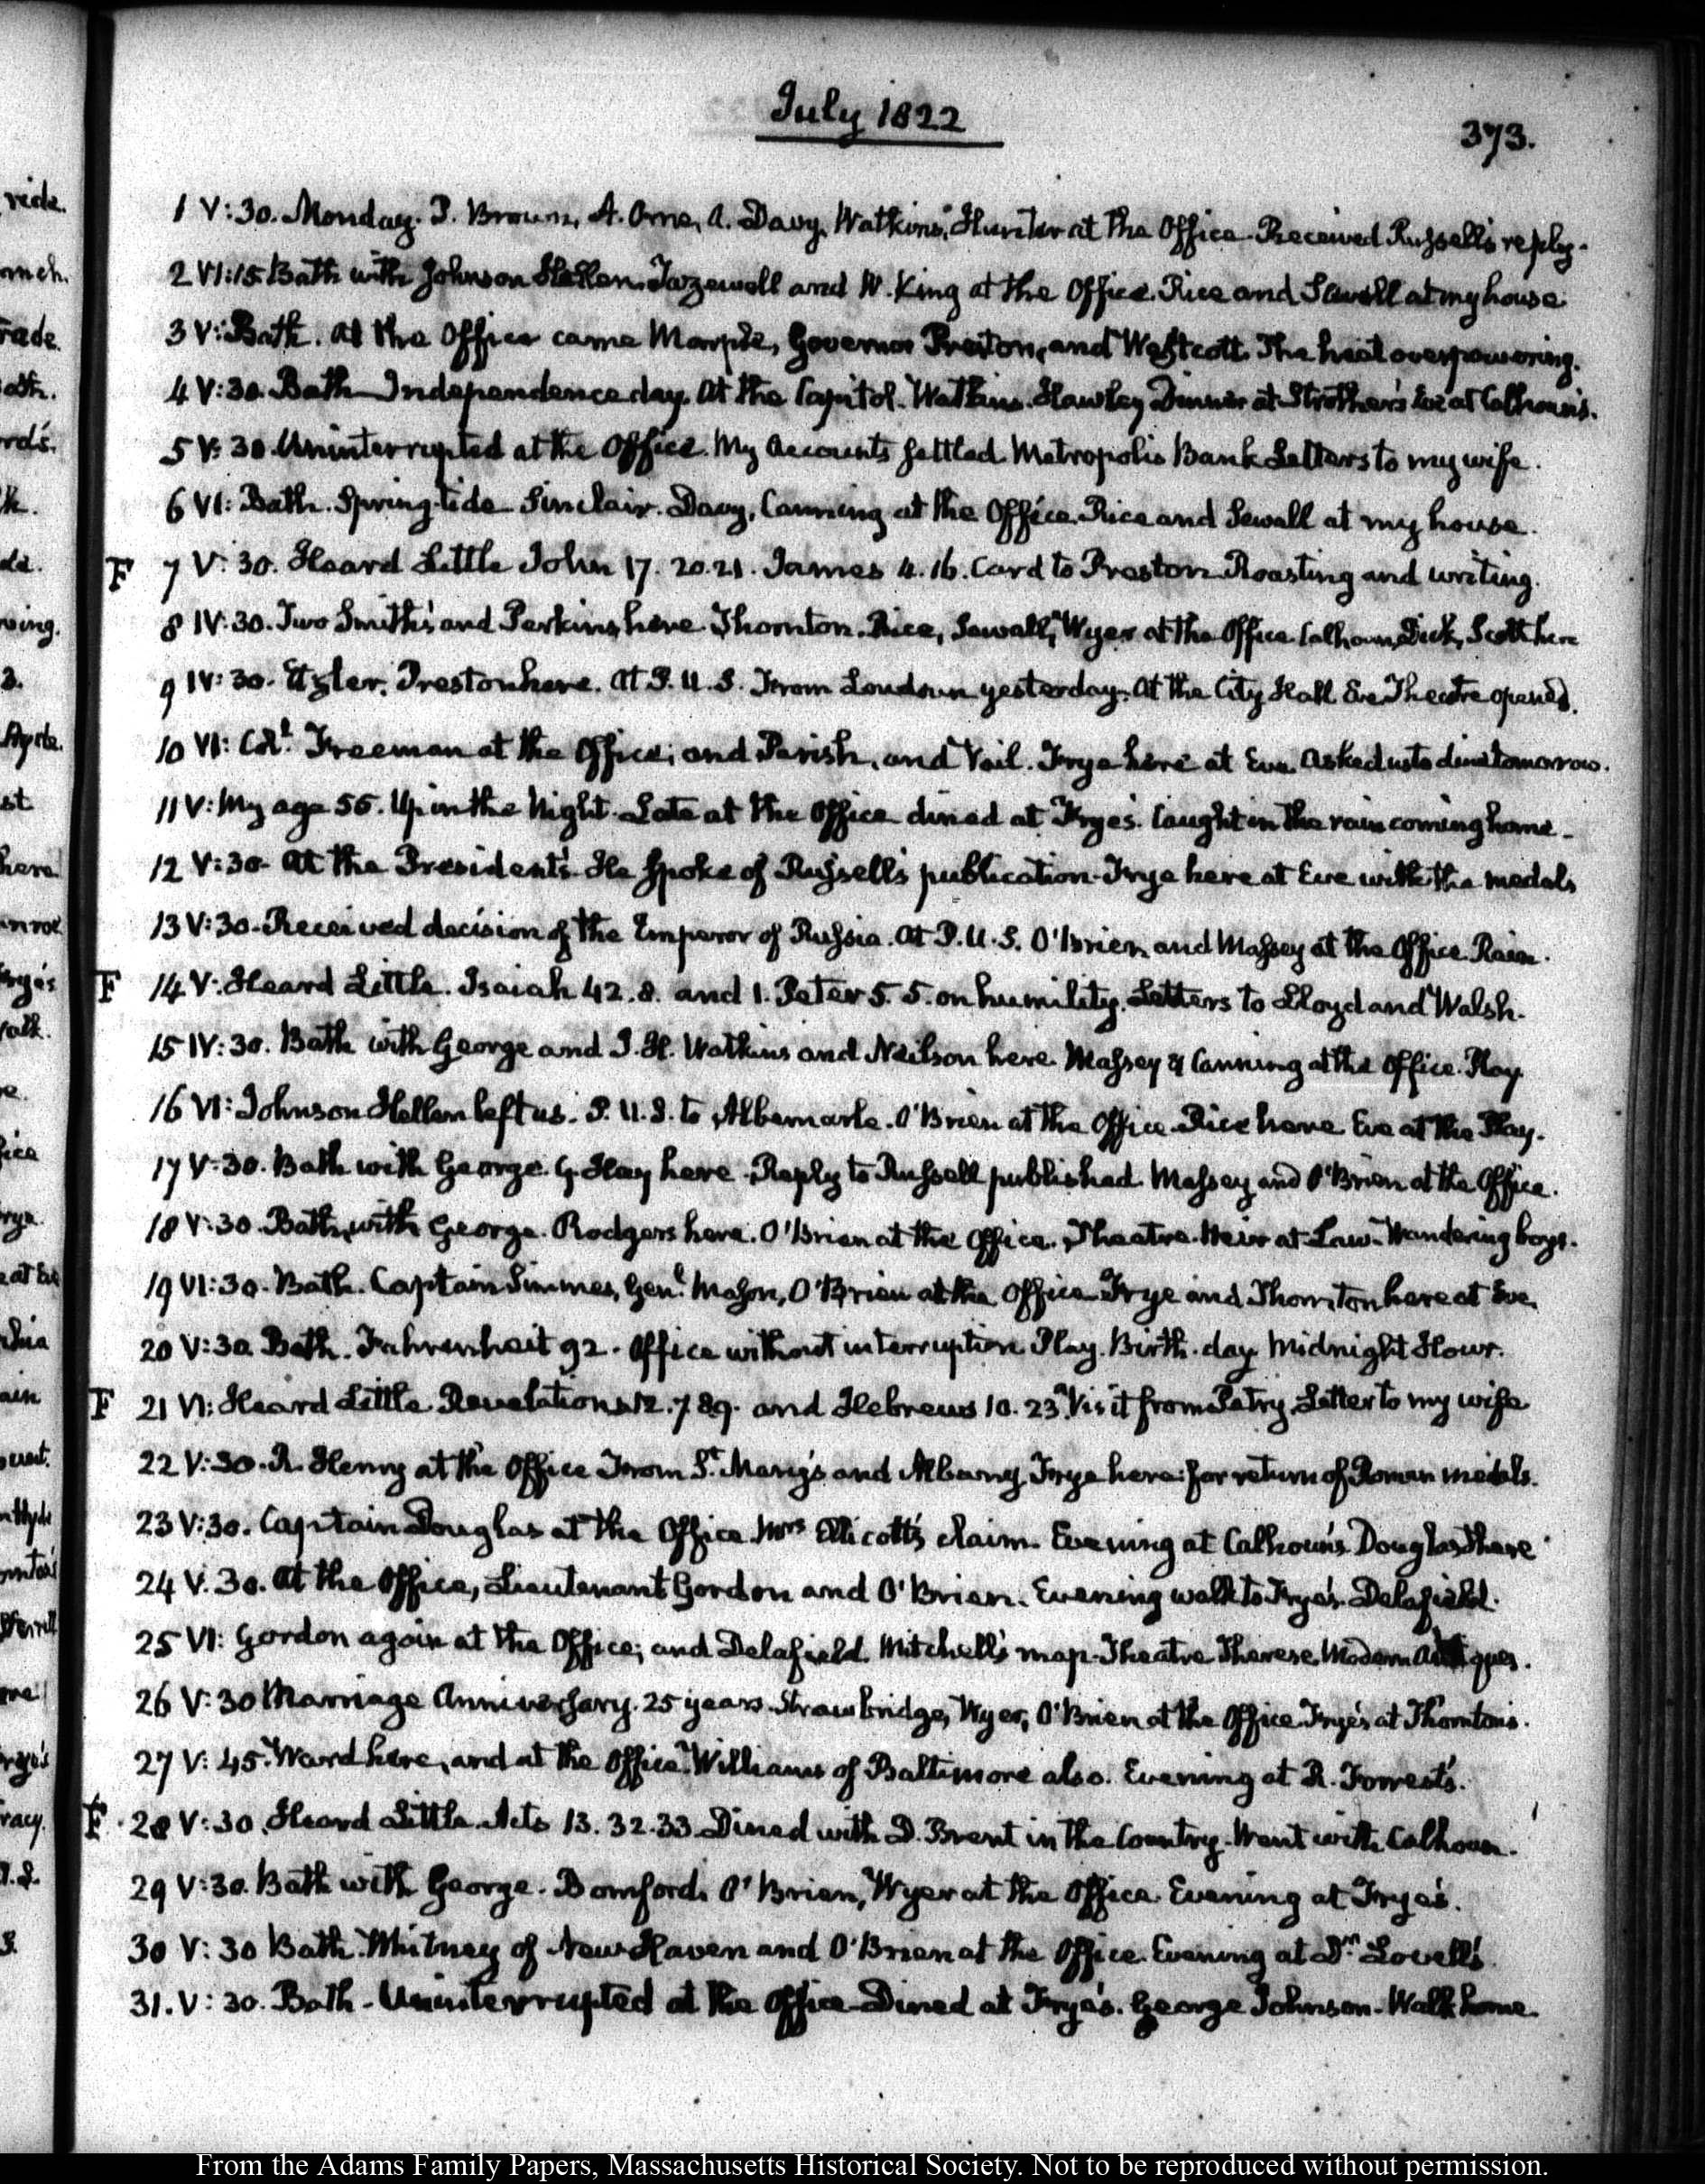 July 1822
373.
1 V:30. Monday. J. Brown, A. Orne, A. Davy, Watkins, Hunter at the Office. Received Russell's reply.
2 VI:15. Bath with Johnson Hellen. Tazewell and W. King at the Office. Rice and Sewall at my house
3 V: Bath. At the Office came Marple, Governor Preston, and Westcott. The heat overpowering.
4 V:30. Bath—Independence day. At the Capitol. Watkins. Hawley Dinner at Strother's Eve at Calhoun's.
5 V:30. Uninterrupted at the Office. My Accounts settled. Metropolis Bank Letters to my wife.
6 VI: Bath. Spring-tide Sinclair. Davy, Canning at the Office. Rice and Sewall at my house.
F 7 V:30. Heard Little John 17. 20.21. James 4.16. Card to Preston Roasting and writing.
8 IV:30. Two Smith's and Perkins here Thornton. Rice, Sewall, Wyer at the Office Calhoun, Dick, Scott here
9 IV:30. Preston here. At P.U.S. From Loudoun yesterday. At the City Hall Eve Theatre opened.
10 VI: Colt. Freeman at the Office; and Parish, and Vail. Frye here at Eve. Asked us to dine tomorrow.
11 V: My age 55. Up in the Night. Late at the Office dined at Frye's. Caught in the rain coming home.
12 V:30. At the President's. He spoke of Russell's publication. Frye here at Eve with the medals
13 V:30. Received decision of the Emperor of Russia. At P.U.S. O'Brien and Massey at the Office. Rain.
F 14 V: Heard Little. Isaiah 42.8. and 1. Peter 5. 5. on humility. Letters to Lloyd and Walsh.
15 IV:30. Bath with George and J. H. Watkins and Neilson here. Massey & Canning at the Office. Play.
16 VI: Johnson Hellen left us. P.U.S. to Albemarle. O'Brien at the Office. Rice here Eve at the Play.
17 V:30. Bath with George. G. Hay here. Reply to Russell published. Massey and O'Brien at the Office.
18 V:30. Bath, with George. Rodgers here. O'Brien at the Office. Theatre. Heir at Law. Wandering boys.
19 VI:30. Bath. Captain Simmes, Genl. Mason, O'Brien at the Office. Frye and Thornton here at Eve.
20 V:30 Bath. Fahrenheit 92. Office without interruption Play. Birth-day Midnight Hour.
F 21 VI: Heard Little Revelations 12. 7 8.9. and Hebrews 10. 23. Visit from Petry. Letter to my wife
22 V:30. R. Henry at the Office From St. Mary's and Albany. Frye here: for return of Roman medals.
23 V:30. Captain Douglas at the Office. Mrs Ellicott's claim. Evening at Calhoun's. Douglas there
24 V.30. At the Office, Lieutenant Gordon and O'Brien. Evening walk to Frye's. Delafield.
25 VI: Gordon again at the Office; and Delafield. Mitchell's map. Theatre Therese, Modern Antiques.
26 V:30 Marriage Anniversary. 25 years. Strawbridge, Wyer, O'Brien at the Office. Frye's at Thornton's.
27 V:45. Ward here, and at the Office. Williams of Baltimore also. Evening at R. Forrest's.
F 28 V:30. Heard Little. Acts 13. 32.33. Dined with D. Brent in the Country. Went with Calhoun.
29 V:30. Bath with George. Bomford. O'Brien, Wyer at the Office. Evening at Frye's.
30 V:30 Bath. Whitney of New-Haven and O'Brien at the Office. Evening at Dr. Lovell's.
31. V:30. Bath. Uninterrupted at the Office. Dined at Frye's. George Johnson. Walk home.
From the Adams Family Papers, Massachusetts Historical Society. Not to be reproduced without permission.